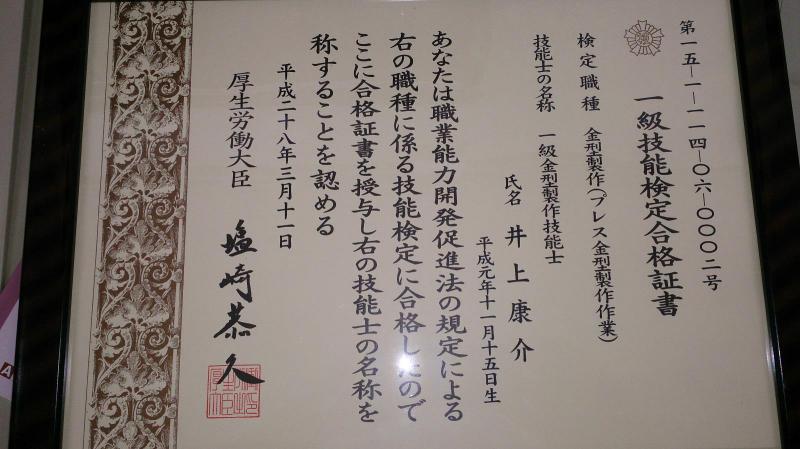 第一五-一-一一四-〇六-〇〇〇二号
一級技能検定合格証書
検定職種 金型製作（プレス金型製作作業）
技能士の名称 一級金型製作技能士
氏名 井上康介
平成元年十一月十五日生
あなたは職業能力開発促進法の規定による
右の職種に係る技能検定に合格したので
ここに合格証書を授与し右の技能士の名称を
称することを認める
平成二十八年三月十一日
厚生労働大臣 塩崎恭久
A